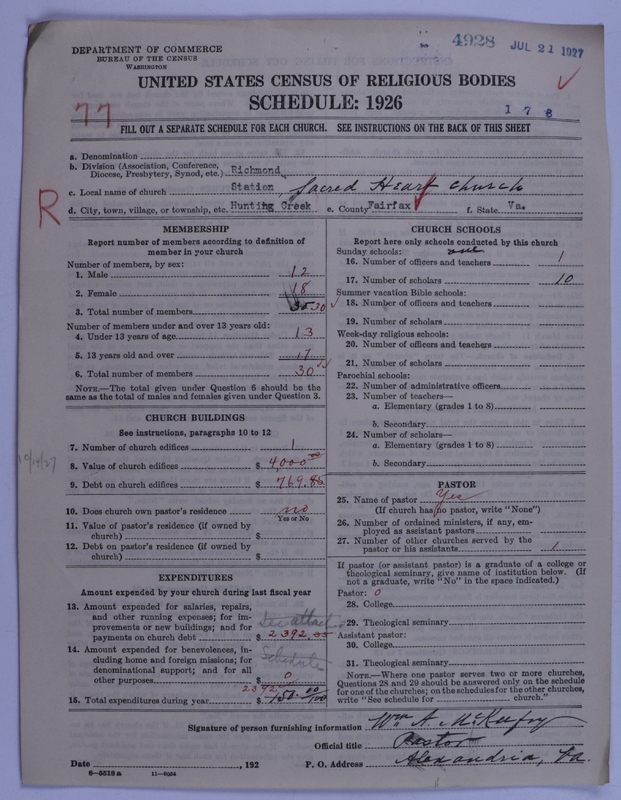 DEPARTMENT OF COMMERCE
BUREAU OF THE CENSUS
WASHINGTON
4928 JUL 21 1927
UNITED STATES CENSUS OF RELIGIOUS BODIES
SCHEDULE: 1926
77
1 7 8
FILL OUT A SEPARATE SCHEDULE FOR EACH CHURCH. SEE INSTRUCTIONS ON THE BACK OF THIS SHEET
a. Denomination
b. Division (Association, Conference, Diocese, Presbytery, Synod, etc.) Richmond
c. Local name of church Station Sacred Heart Church
R
d. City, town, village, or township, etc. Hunting Creek e. County Fairfax f. State Va.
MEMBERSHIP
Report number of members according to definition of
member in your church
Number of members, by sex:
1. Male 12
2. Female 18
3. Total number of members 30
Number of members under and over 13 years old:
4. Under 13 years of age 13
5. 13 years old and over 17
6. Total number of members 30
NOTE.—The total given under Question 6 should be the
same as the total of males and females given under Question 3.
CHURCH BUILDINGS
See instructions, paragraphs 10 to 12
7. Number of church edifices 1
8. Value of church edifices $ 4,000 00
9. Debt on church edifices $ 769.86
10. Does church own pastor's residence? no
Yes or No
11. Value of pastor's residence (if owned by
church) $
12. Debt on pastor's residence (if owned by
church) $
EXPENDITURES
Amount expended by your church during last fiscal year
13. Amount expended for salaries, repairs,
and other running expenses; for im-
provements or new buildings; and for
payments on church debt $ 2392.
See attach
Schedule
14. Amount expended for benevolences, in-
cluding home and foreign missions; for
denominational support; and for all
other purposes $ 0
2392
15. Total expenditures during year $
CHURCH SCHOOLS
Report here only schools conducted by this church
Sunday schools:
16. Number of officers and teachers 1
17. Number of scholars 10
Summer vacation Bible schools:
18. Number of officers and teachers
19. Number of scholars
Week-day religious schools:
20. Number of officers and teachers
21. Number of scholars
Parochial schools:
22. Number of administrative officers
23. Number of teachers—
a. Elementary (grades 1 to 8)
b. Secondary
24. Number of scholars—
a. Elementary (grades 1 to 8)
b. Secondary
PASTOR
25. Name of pastor Yes
(If church has no pastor, write "None")
26. Number of ordained ministers, if any, em-
ployed as assistant pastors
27. Number of other churches served by the
pastor or his assistants 1
If pastor (or assistant pastor) is a graduate of a college or
theological seminary, give name of institution below. (If
not a graduate, write "No" in the space indicated.)
Pastor: 0
28. College
29. Theological seminary
Assistant pastor:
30. College
31. Theological seminary
NOTE.—Where one pastor serves two or more churches,
Questions 28 and 29 should be answered only on the schedule
for one of the churches; on the schedules for the other churches,
write "See schedule for church."
Signature of person furnishing information Wm A. McKeefry
Official title Pastor
Date , 192 P. O. Address Alexandria, Va.
8—5518a 11—8054